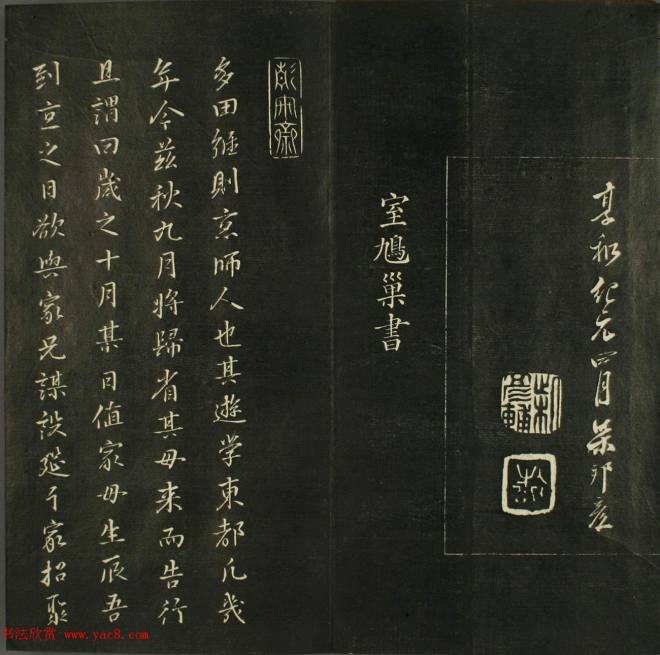 享和紀元四月柴邦彦
柴邦彦輔
室鳩巢書
多田維則京師人也其遊学東都凡幾
年今茲秋九月將歸省其母来而告行
且謂曰歲之十月某日值家母生辰吾
到京之日欲與家兄謀設筵于家招聚
书法欣赏 www.yac8.com